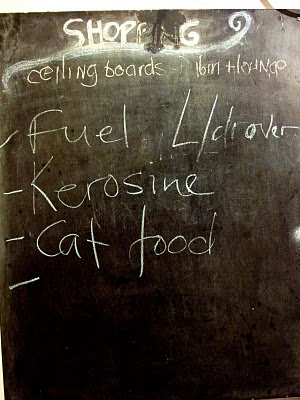 SHOPPING
ceiling boards
Fuel L/drover
- Kerosine
- Cat food
-